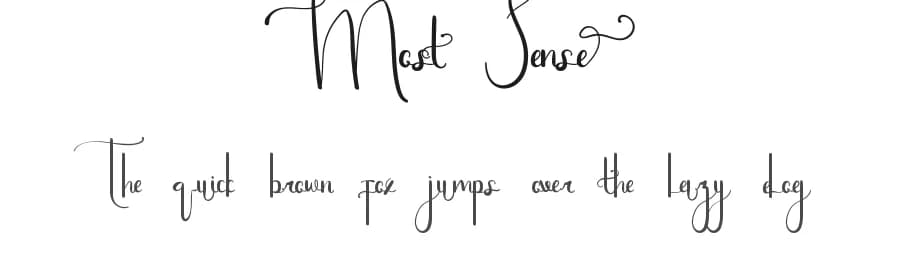 Most Sense
The quick brown fox jumps over the lazy dog